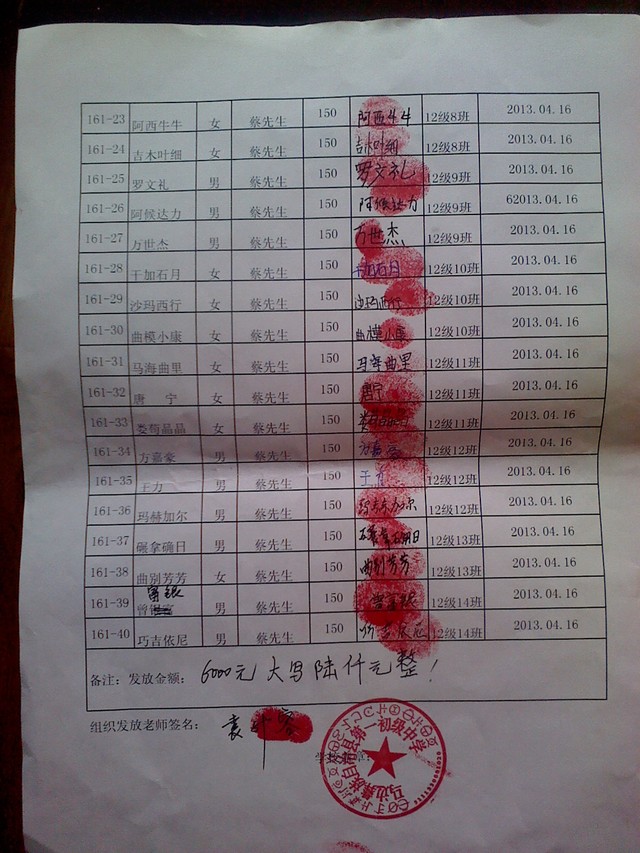 161-23 阿西牛牛 女 蔡先生 150 阿西牛牛 12级8班 2013.04.16
161-24 吉木叶细 女 蔡先生 150 吉木叶细 12级8班 2013.04.16
161-25 罗文礼 男 蔡先生 150 罗文礼 12级9班 2013.04.16
161-26 阿候达力 男 蔡先生 150 阿候达力 12级9班 62013.04.16
161-27 万世杰 男 蔡先生 150 万世杰 12级9班 2013.04.16
161-28 干加石月 女 蔡先生 150 干加石月 12级10班 2013.04.16
161-29 沙玛西行 女 蔡先生 150 沙玛西行 12级10班 2013.04.16
161-30 曲模小康 女 蔡先生 150 曲模小康 12级10班 2013.04.16
161-31 马海曲里 女 蔡先生 150 马海曲里 12级11班 2013.04.16
161-32 唐 宁 女 蔡先生 150 唐宁 12级11班 2013.04.16
161-33 娄荀晶晶 女 蔡先生 150 12级11班 2013.04.16
161-34 方嘉豪 男 蔡先生 150 方嘉豪 12级12班 2013.04.16
161-35 王力 男 蔡先生 150 王力 12级12班 2013.04.16
161-36 玛赫加尔 男 蔡先生 150 12级12班 2013.04.16
161-37 碾拿确日 男 蔡先生 150 12级13班 2013.04.16
161-38 曲别芳芳 女 蔡先生 150 曲别芳芳 12级13班 2013.04.16
161-39 曾 男 蔡先生 150 12级14班 2013.04.16
161-40 巧吉依尼 男 蔡先生 150 12级14班 2013.04.16
备注：发放金额： 6000元 大写陆仟元整！
组织发放老师签名： 袁
马边彝族自治县第一初级中学